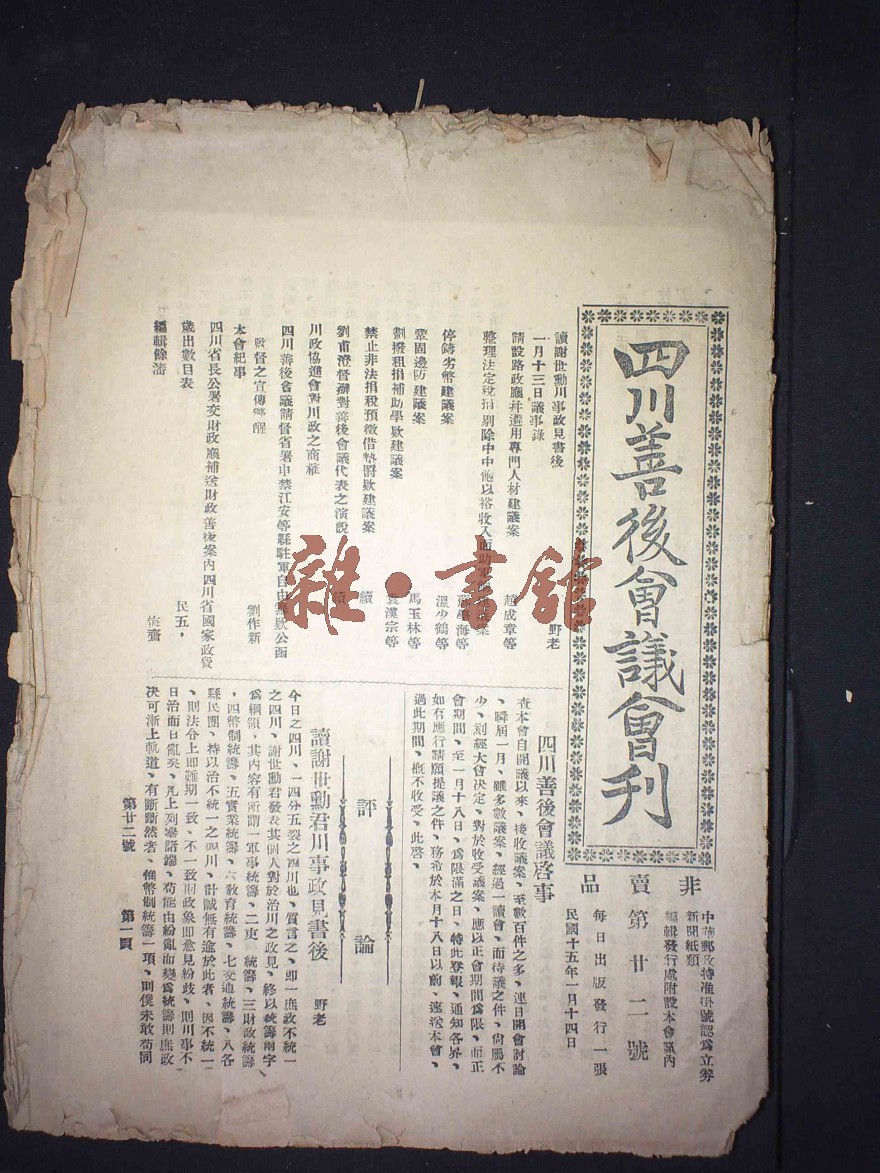 四川善後會議會刊
非賣品
第廿二號
每日出版發行一張
民國十五年一月十四日
中華郵政特准掛號認為立券
新聞紙類
編輯發行處附設本會議內
讀謝世勳川事政見書後 野老
一月十三日議事錄
請設路政廳并遴用專門人材建議案 趙成章等
整理法定稅捐剔除中
停鑄劣幣建議案 溫少鶴等
鞏固邊防建議案 馬玉林等
劃撥租捐補助學欵建議案 袁漢宗等
禁止非法捐稅預徵借墊罸欵建議案 續
劉甫澄督辦對善後會議代表之演說
川政協進會對川政之商榷
四川善後會議請督省署申禁江安等縣駐軍自由 欵公函
監督之宣傳警醒 劉作新
本會紀事
四川省長公署交財政廳補送財政善後案內四川省國家政費
歲出數目表 民五，
編輯餘瀋 悔齋
四川善後會議啓事
查本會自開議以來、接收議案、至數百件之多、連日開會討論
、瞬屆一月、雖多數議案、經過一讀會、而待議之件、尙屬不
少、刻經大會决定、對於收受議案、應以正會期間爲限、而正
會期間、至一月十八日、爲限滿之日、特此登報、通知各界、
如有應行請願提議之件、務希於本月十八日以前、逕送本會、
過此期間、槪不收受、此啓、
評論
讀謝世勳君川事政見書後 野老
今日之四川、一四分五裂之四川也、質言之、即一庶政不統一
之四川、謝世勳君發表其個人對於治川之政見、終以統籌兩字
爲綱領，其內容有所謂一軍事統籌、二吏 統籌、三財政統籌
，四幣制統籌、五實業統籌、六敎育統籌、七交通統籌、八各
縣民團、持以治不統一之四川、計誠無有逾於此者、因不統一
、則法令上即難期一致、不一致則政象即愈見紛歧、則川事不
日治而日亂矣、凡上列舉諸端、苟能由紛亂而變爲統籌則庶政
决可漸上軌道、有斷斷然者、惟幣制統籌一項、則僕未敢苟同
第廿二號 第一頁
雜·書館